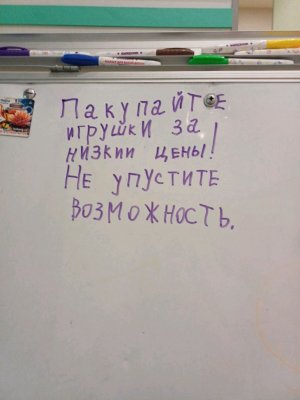 Пакупайте
игрушки за
низкии цены!
Не упустите
возможность.